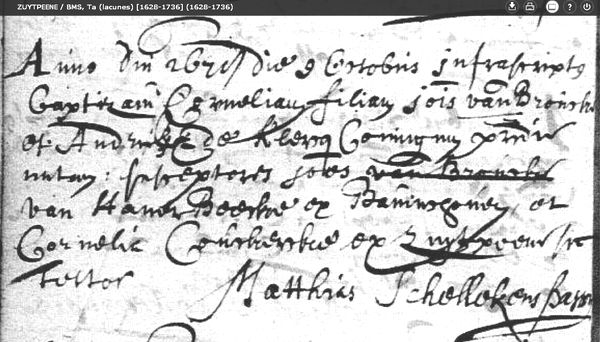 ZUYTPEENE / BMS, Ta (lacunes) [1628-1736] (1628-1736)
Anno dm̄ 1671 die 9 Octobris Infrascriptus
Baptizavi Corneliam filiam jois van Bronck
et de Klercq Coniugum
natam: susceptores joēs van Broncke
van HaverBeecke ex Bavinchove, et
Cornelia Coucherckie ex Zuytpeene
testor
Matthias Schellekens